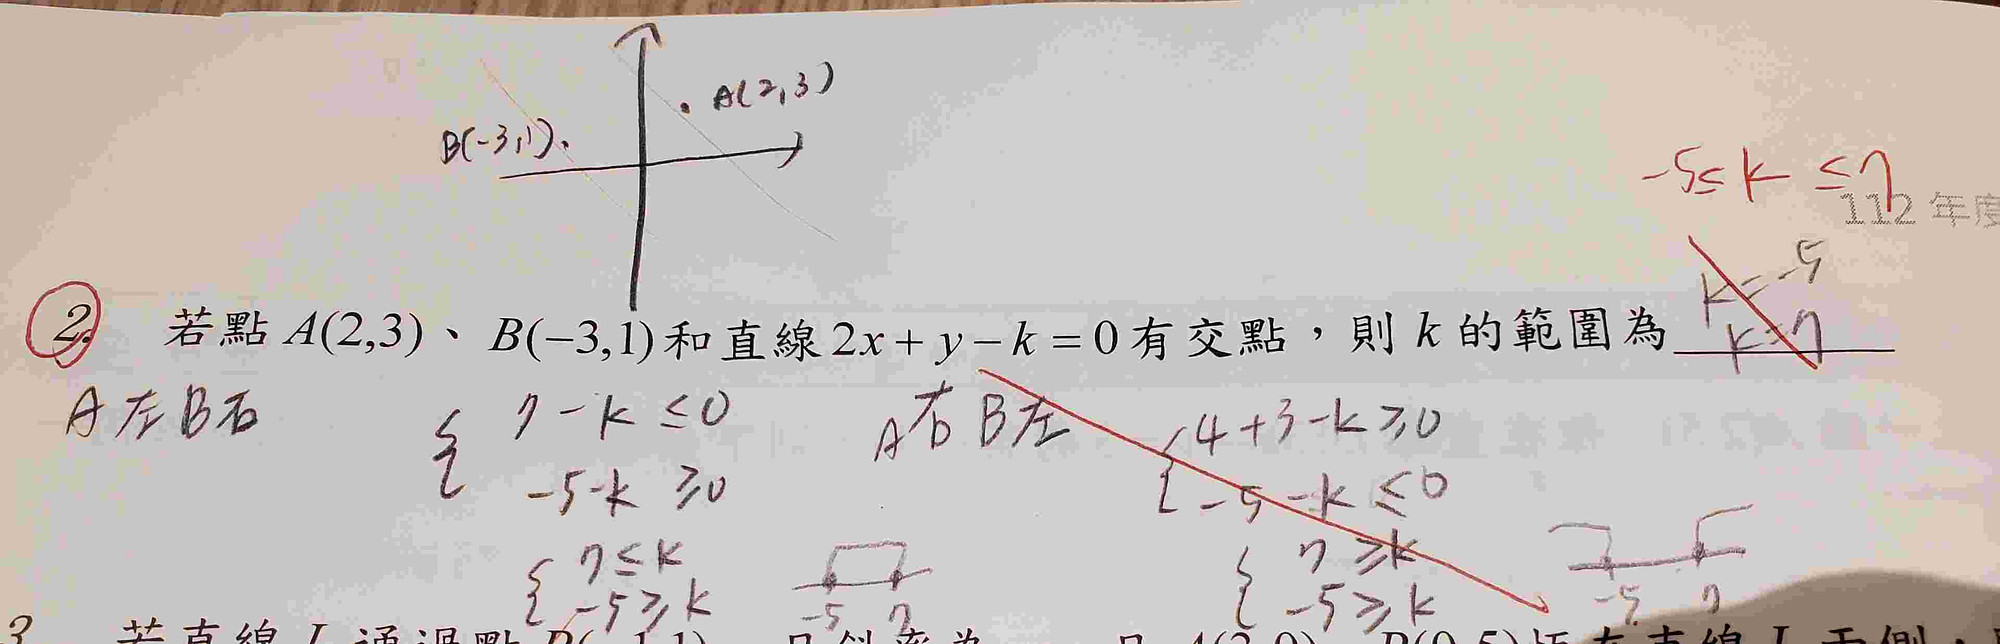 A(2,3)
B(-3,1)
-5≤k≤7
112 年度
k=-5
k=7
2. 若點 A(2,3)、B(−3,1)和直線 2x + y − k = 0 有交點，則 k 的範圍為
A左B右
7-k≤0
-5-k≥0
7≤k
-5≥k
-5 7
A右B左
4+3-k≥0
-5-k≤0
7≥k
-5≥k
-5 7
3 若直線 L 通過點